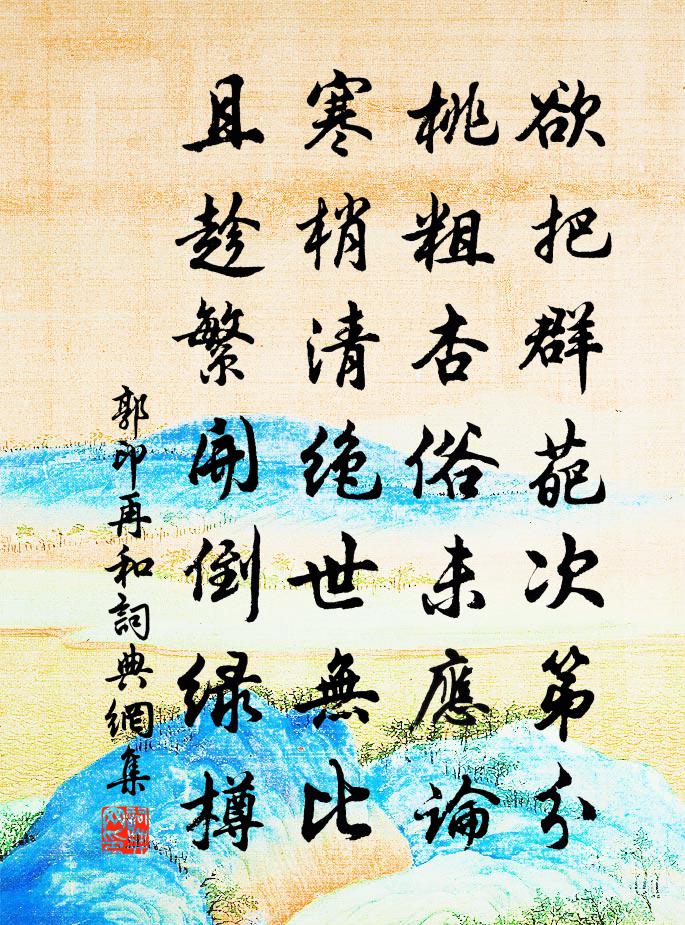 欲把群葩次第分
桃粗杏俗未應論
寒梢清絕世無比
且趁繁開倒緑樽
郭印再和詞典網集